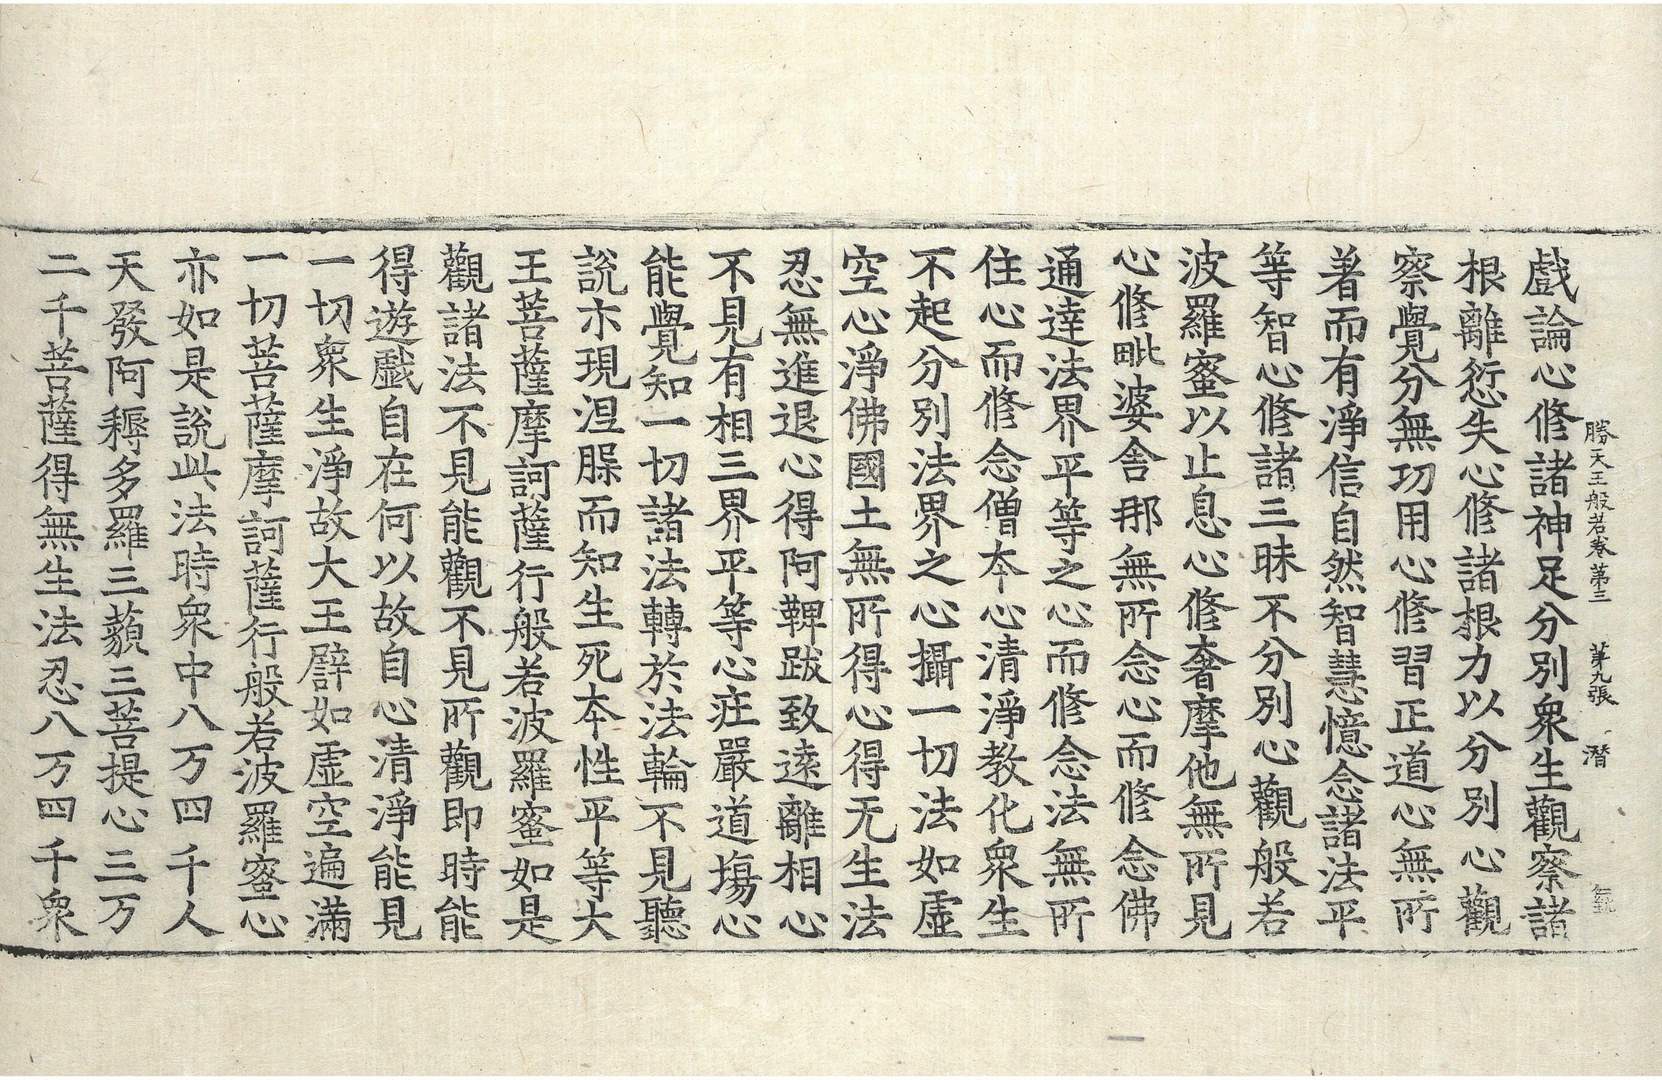 勝天王般若卷第三　第九張　潛
戲論心修諸神足分別衆生觀察諸
根離愆失心修諸根力以分別心觀
察覺分無功用心修習正道心無所
著而有淨信自然智慧憶念諸法平
等智心修諸三昧不分別心觀般若
波羅蜜以止息心修奢摩他無所見
心修毗婆舍那無所念心而修念佛
通達法界平等之心而修念法無所
住心而修念僧夲心清淨教化衆生
不起分別法界之心攝一切法如虛
空心淨佛國土無所得心得无生法
忍無進退心得阿鞞跋致遠離相心
不見有相三界平等心莊嚴道場心
能覺知一切諸法轉於法輪不見聽
說亦現涅槃而知生死夲性平等大
王菩薩摩訶薩行般若波羅蜜如是
觀諸法不見能觀不見所觀即時能
得遊戲自在何以故自心清淨能見
一切衆生淨故大王譬如虛空遍滿
一切菩薩摩訶薩行般若波羅蜜心
亦如是說此法時衆中八万四千人
天發阿耨多羅三藐三菩提心三万
二千菩薩得無生法忍八万四千衆